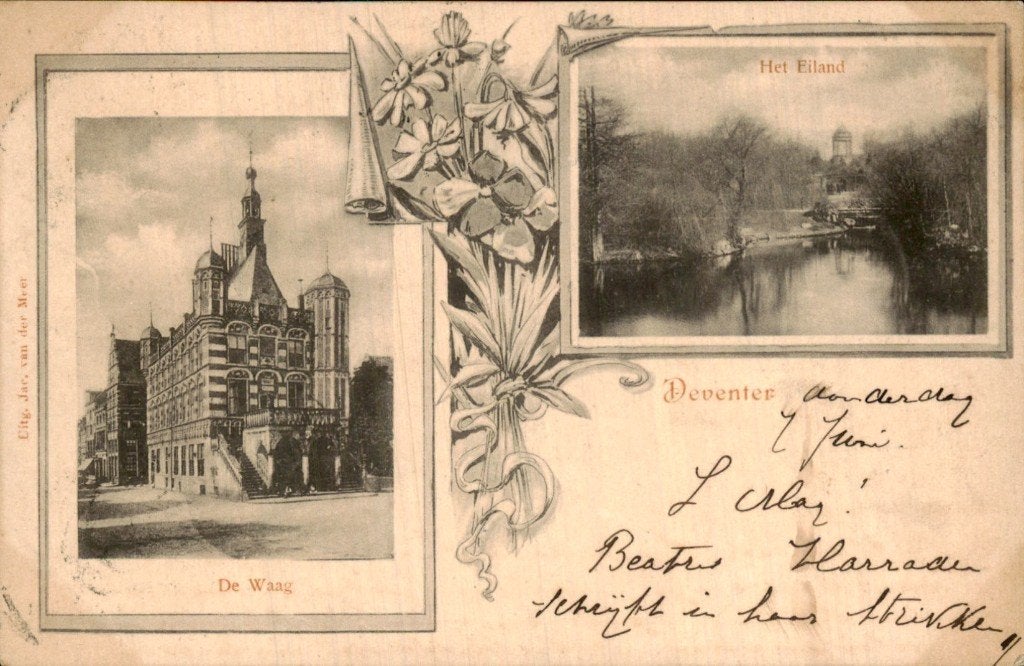 Uitg. Jac. van der Meer
De Waag
Het Eiland
Deventer
donderdag
7 Juni.
L May!
Beatris Harraden
schrijft in haar Strikken